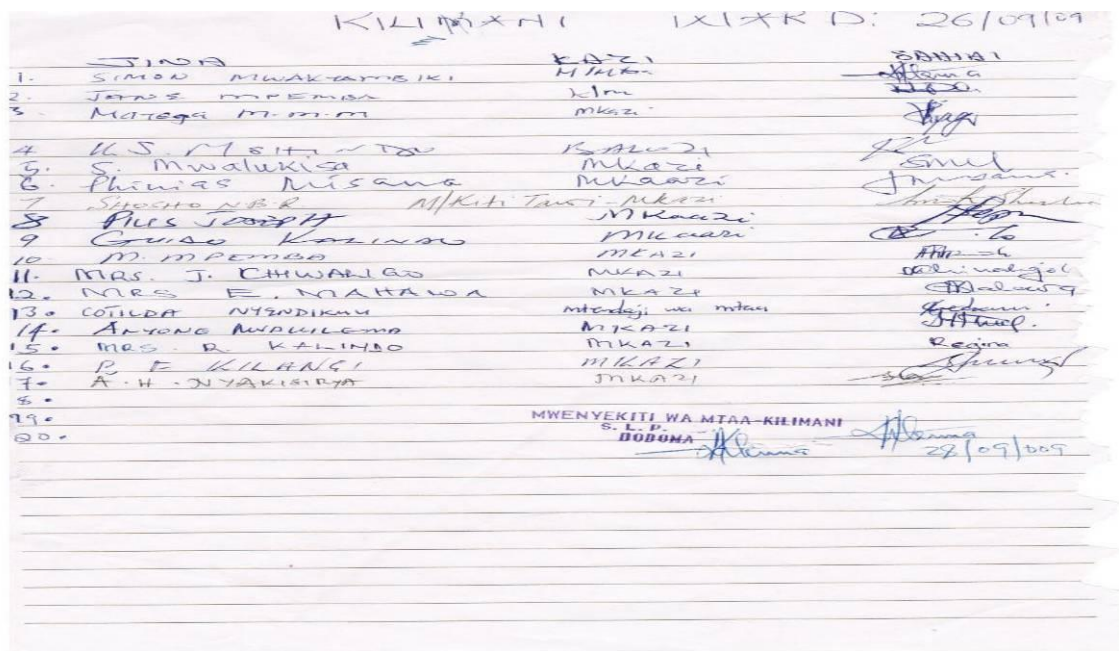 KILIMANI WARD: 26/09/09
JINA KAZI SAHIHI
1. SIMON MWAKYAMBIKI M/Mtaa
2. MPEMBA
3. Matega M.M.M Mkazi
4. K.S. BALOZI
5. S. Mwalukisa Mkazi Smul
6. Phinias Misana Mkaazi Jmisana.
7 SHOSHO N.B.R M/Kiti Tawi-Mkazi
8 PIUS JOSEPH Mkaazi
9 GUIDO KALINDO Mkaazi
10 M. MPEMBA MKAZI
11. MRS. J. CHIWALIGO MKAZI
12. MRS E. MAHAWA MKAZI
13. COTILDA NYENDIKMU mtendaji wa mtaa
14. MKAZI
15. MRS. R. KALINDO MKAZI Regina
16. P. F KILANGI MKAZI
17. A. H. NYAKISIRYA MKAZI
8.
19.
20.
MWENYEKITI WA MTAA-KILIMANI
S. L. P.
DODOMA
28/09/009